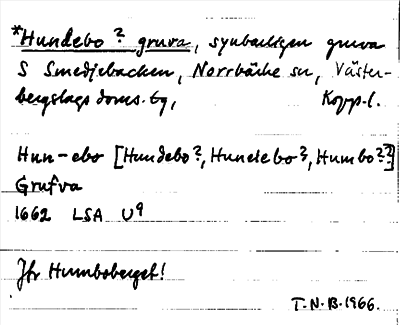 *Hundebo? gruva, synbarligen gruva
S Smedjebacken, Norrbärke sn, Väster-
bergslags doms. tg, Kopp.l.
Hun-ebo [Hundebo?, Hunelebo?, Humbo??]
Grufva
1662 LSA U9
Jfr Humboberget!
T.N.B. 1966.